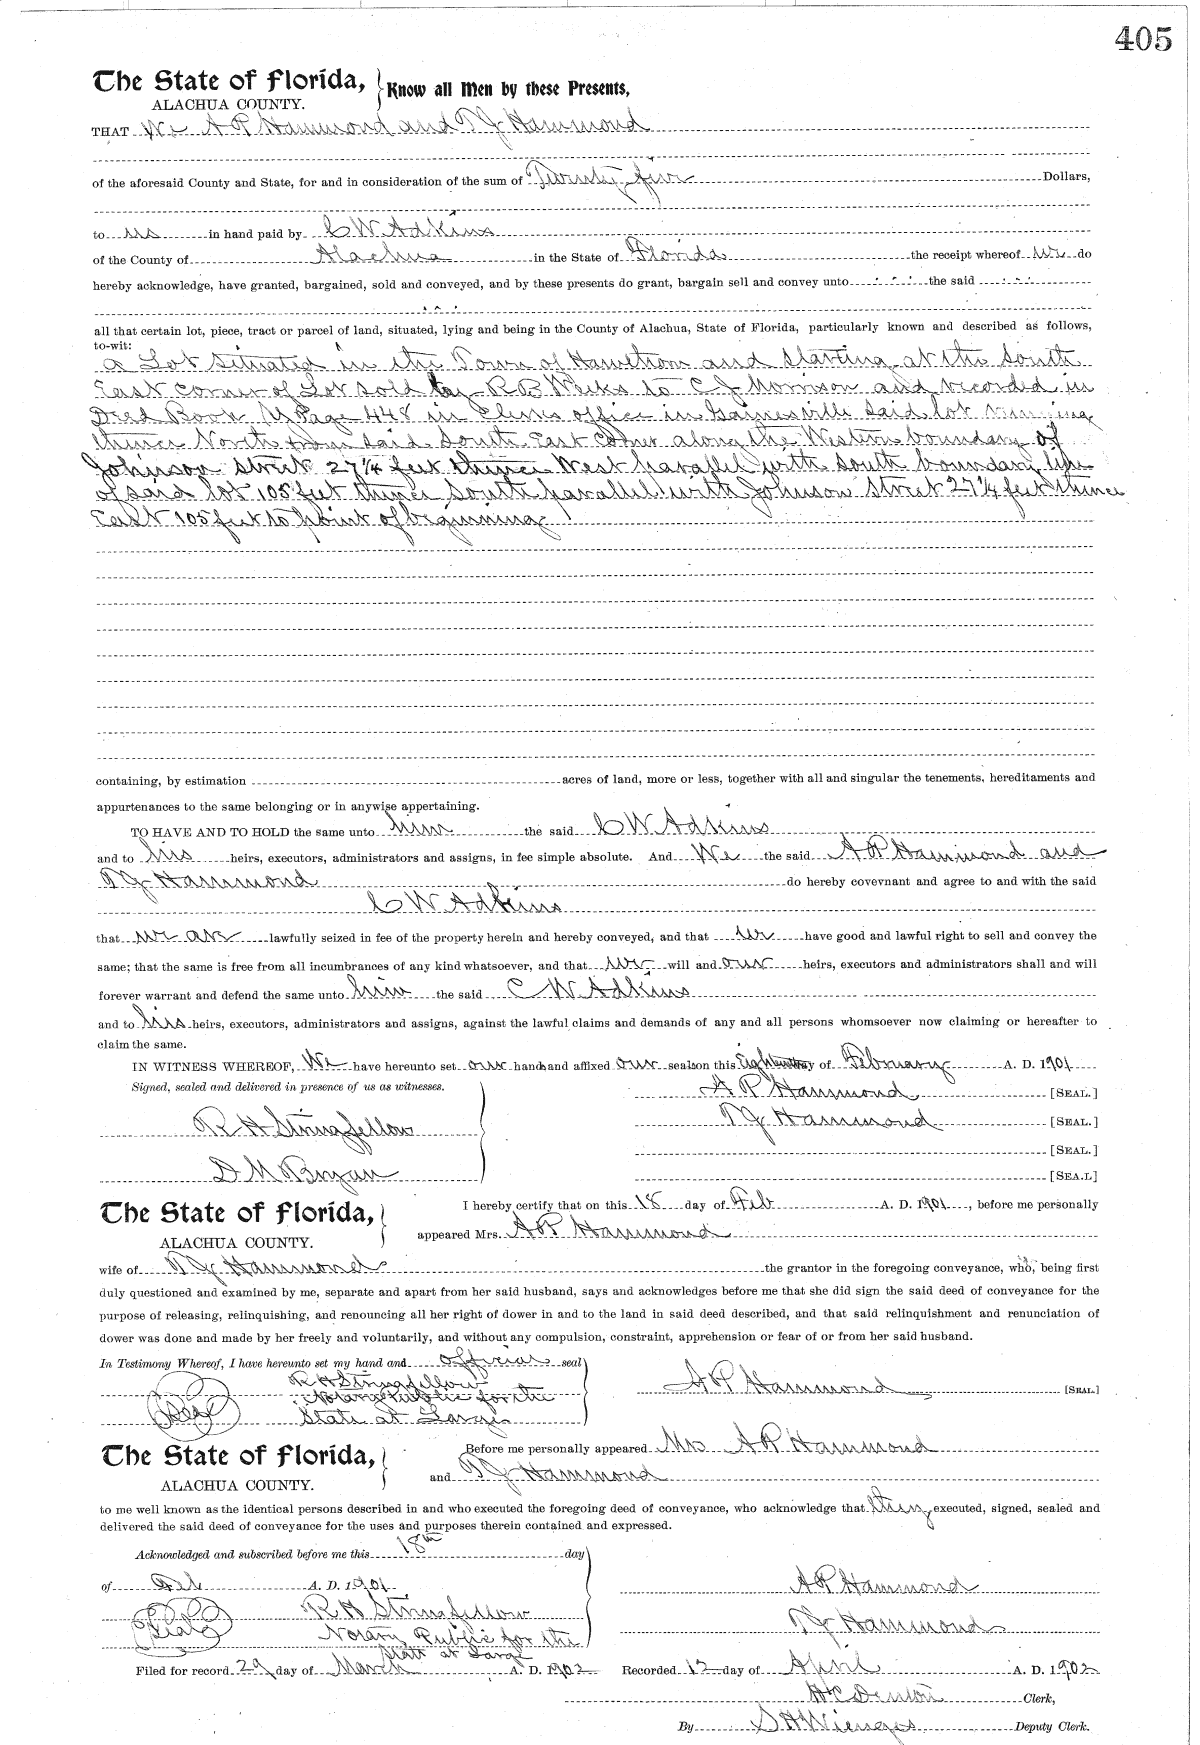 405
The State of Florida, Know all Men by these Presents,
ALACHUA COUNTY.
THAT We A P Hammond and T J Hammond
of the aforesaid County and State, for and in consideration of the sum of Twenty five Dollars,
to us in hand paid by C W Adkins
of the County of Alachua in the State of Florida the receipt whereof we do
hereby acknowledge, have granted, bargained, sold and conveyed, and by these presents do grant, bargain sell and convey unto the said
all that certain lot, piece, tract or parcel of land, situated, lying and being in the County of Alachua, State of Florida, particularly known and described as follows,
to-wit:
a Lot situated in the Town of Hawthorn and starting at the South
East corner of Lot sold by R B Weeks to C J Morrison and recorded in
Deed Book Page 448 in Clerks office in Gainesville said lot running
thence North from said South East Corner along the Western boundary of
Johnson Street 27 1/4 feet thence West parallel with South boundary line
of said lot 105 feet thence South parallel with Johnson Street 27 1/4 feet thence
East 105 feet to point of beginning
containing, by estimation acres of land, more or less, together with all and singular the tenements, hereditaments and
appurtenances to the same belonging or in anywise appertaining.
TO HAVE AND TO HOLD the same unto him the said C W Adkins
and to his heirs, executors, administrators and assigns, in fee simple absolute. And We the said A P Hammond and
T J Hammond do hereby covevnant and agree to and with the said
C W Adkins
that we are lawfully seized in fee of the property herein and hereby conveyed, and that we have good and lawful right to sell and convey the
same; that the same is free from all incumbrances of any kind whatsoever, and that we will and our heirs, executors and administrators shall and will
forever warrant and defend the same unto him the said C W Adkins
and to his heirs, executors, administrators and assigns, against the lawful claims and demands of any and all persons whomsoever now claiming or hereafter to
claim the same.
IN WITNESS WHEREOF, We have hereunto set our hands and affixed our seals on this day of February A. D. 1901
Signed, sealed and delivered in presence of us as witnesses.
A P Hammond [SEAL.]
R H Stringfellow T J Hammond [SEAL.]
[SEAL.]
D M Bryan [SEA.L]
The State of Florida, I hereby certify that on this 18 day of Feb A. D. 1901, before me personally
ALACHUA COUNTY. appeared Mrs. A P Hammond
wife of T J Hammond the grantor in the foregoing conveyance, who, being first
duly questioned and examined by me, separate and apart from her said husband, says and acknowledges before me that she did sign the said deed of conveyance for the
purpose of releasing, relinquishing, and renouncing all her right of dower in and to the land in said deed described, and that said relinquishment and renunciation of
dower was done and made by her freely and voluntarily, and without any compulsion, constraint, apprehension or fear of or from her said husband.
In Testimony Whereof, I have hereunto set my hand and official seal
R H Stringfellow A P Hammond [SEAL]
Notary Public for the
Seal State at Large
The State of Florida, Before me personally appeared Mrs A P Hammond
ALACHUA COUNTY. and T J Hammond
to me well known as the identical persons described in and who executed the foregoing deed of conveyance, who acknowledge that they executed, signed, sealed and
delivered the said deed of conveyance for the uses and purposes therein contained and expressed.
Acknowledged and subscribed before me this 18th day
of Feb A. D. 1901 A P Hammond
R H Stringfellow
Seal Notary Public for the T J Hammond
State at Large
Filed for record 29 day of March A. D. 1902 Recorded 12 day of April A. D. 1902
H C Denton Clerk,
By S H Wienges Deputy Clerk.